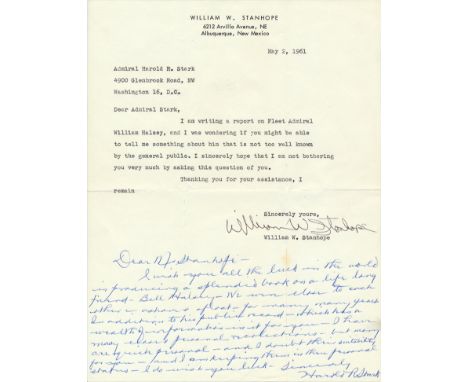 WILLIAM W. STANHOPE
6212 Arvilla Avenue, NE
Albuquerque, New Mexico
May 2, 1961
Admiral Harold R. Stark
4900 Glenbrook Road, NW
Washington 16, D.C.
Dear Admiral Stark,
I am writing a report on Fleet Admiral
William Halsey, and I was wondering if you might be able
to tell me something about him that is not too well known
by the general public. I sincerely hope that I am not bothering
you very much by asking this question of you.
Thanking you for your assistance, I
remain
Sincerely yours,
William W Stanhope
William W. Stanhope
Dear Mr Stanhope -
I wish you all the luck in the world
in producing a splendid book on a life long
friend - Bill Halsey - We were close to each
other ashore & afloat for many, many years
In addition to his public record - which has a
wealth of information in it for you - I have
many close personal recollections - but many
are quite personal - and I doubt their suitability
for you - and I am keeping them in their personal
status - I do wish you luck - Sincerely
Harold R Stark